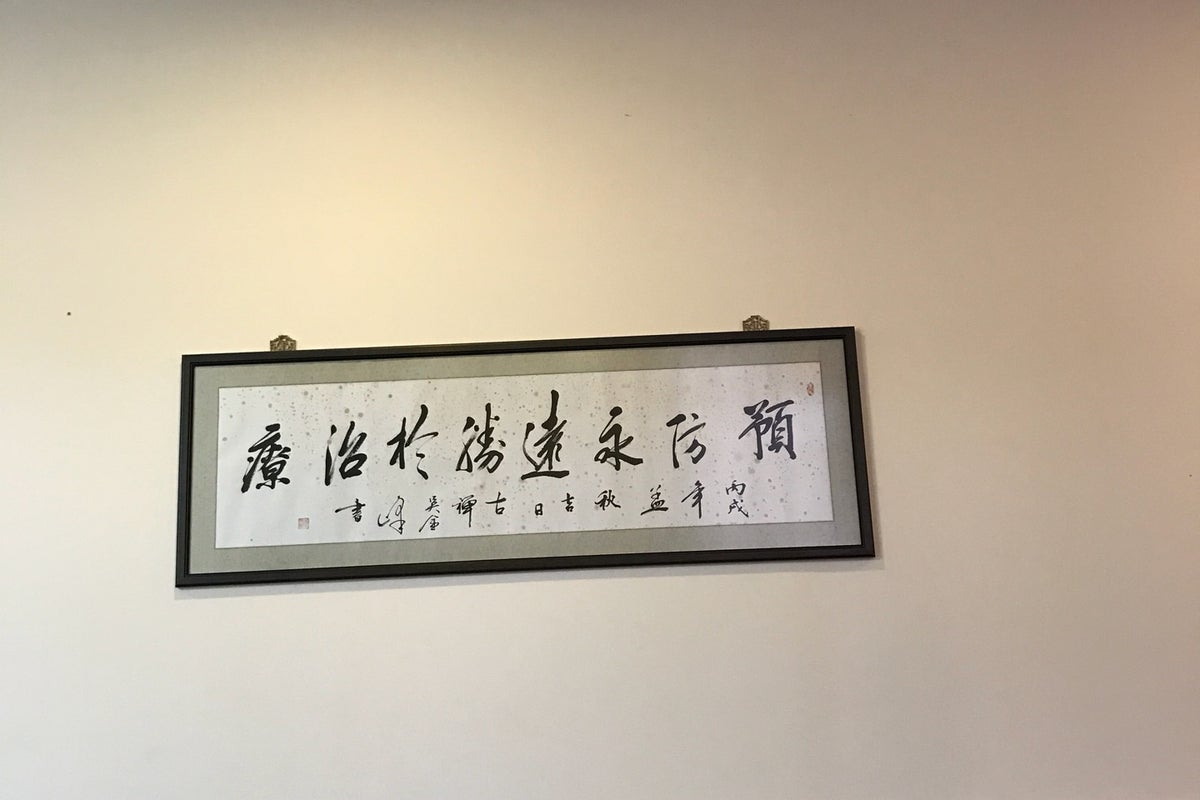 預防永遠勝於治療
丙戌年孟秋吉日古禪吳金峰書